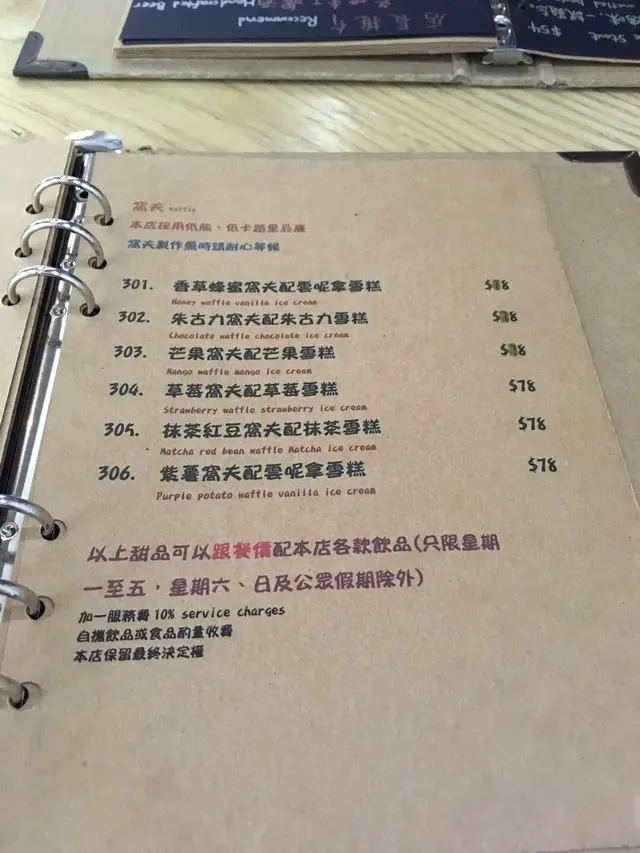 店長推介
Recommend
Handcrafted Beer
$54
窩夫 Waffle
本店採用低脂、低卡路里品種
窩夫製作需時請耐心等候
301. 香草蜂蜜窩夫配雲呢拿雪糕
Honey waffle vanilla ice cream
302. 朱古力窩夫配朱古力雪糕
Chocolate waffle chocolate ice cream
303. 芒果窩夫配芒果雪糕
Mango waffle mango ice cream
304. 草莓窩夫配草莓雪糕 $78
Strawberry waffle strawberry ice cream
305. 抹茶紅豆窩夫配抹茶雪糕 $78
Matcha red bean waffle Matcha ice cream
306. 紫薯窩夫配雲呢拿雪糕 $78
Purple potato waffle vanilla ice cream
以上甜品可以跟餐價配本店各款飲品(只限星期
一至五，星期六、日及公眾假期除外)
加一服務費 10% service charges
自攜飲品或食品酌量收費
本店保留最終決定權